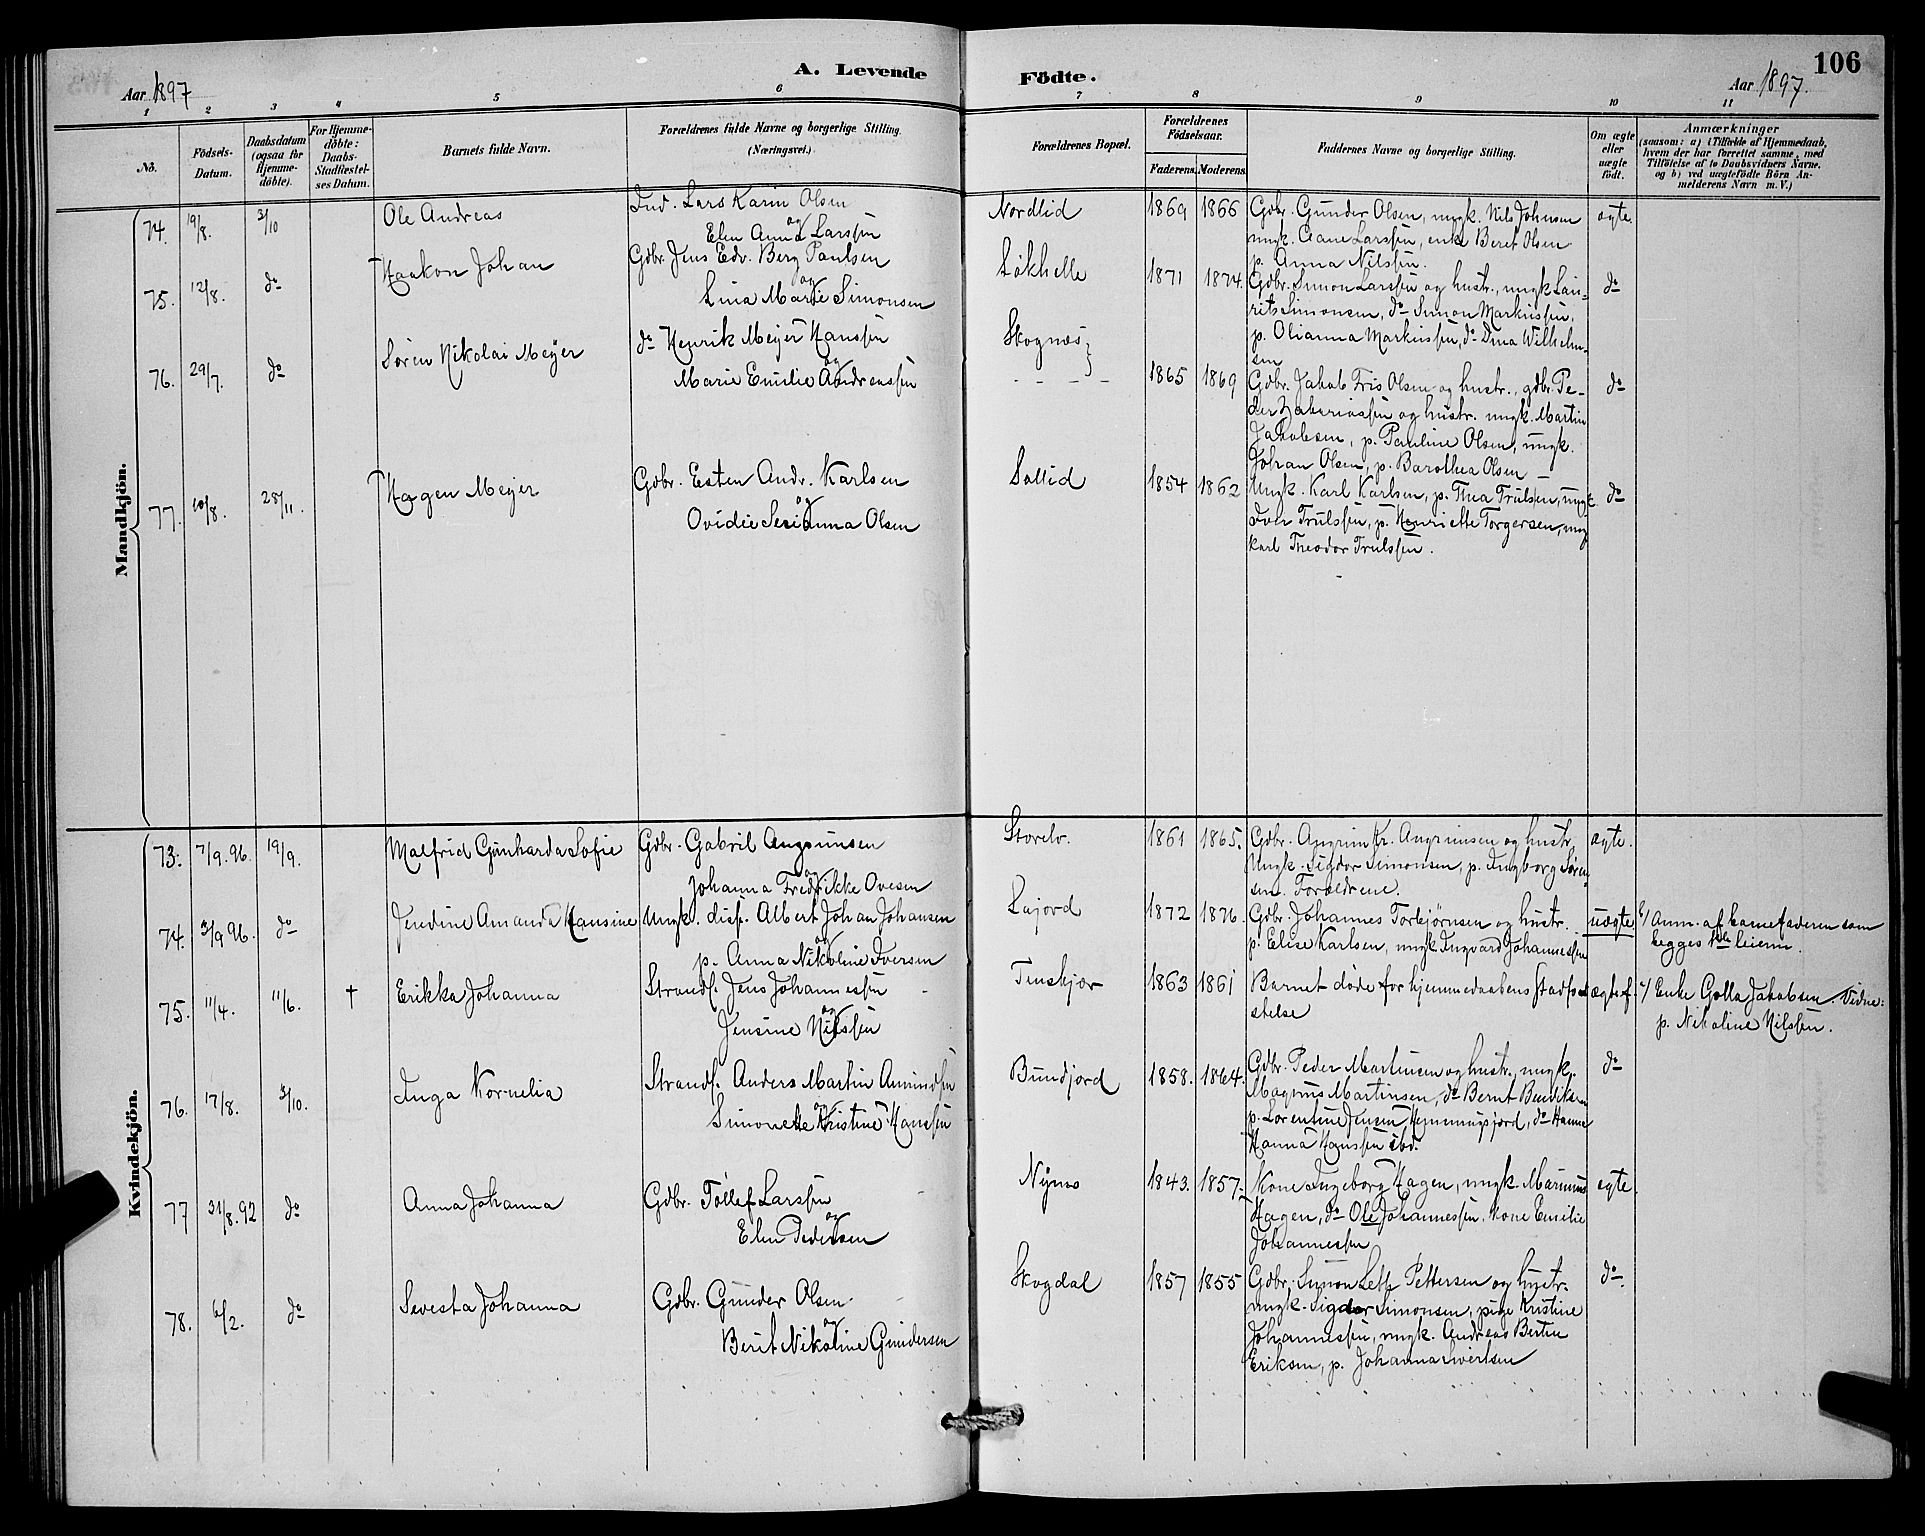 106
A. Levende Födte.
Aar 1897
Aar 1897.
1 2 3 4 5 6 7 8 9 10 11
No.
Födsels-Datum.
Daabsdatum (ogsaa for Hjemme-döbte).
For Hjemme-döbte: Daabs-Stadfæstel-ses Datum.
Barnets fulde Navn.
Forældrenes fulde Navne og borgerlige Stilling.
(Næringsvei.)
Forældrenes Bopæl.
Forældrenes Födselsaar.
Faderens. Moderens.
Faddernes Navne og borgerlige Stilling.
Om ægte eller uægte födt.
Anmærkninger
(saasom: a) i Tilfælde af Hjemmedaab,
hvem der har forrettet samme, med
Tilföielse af to Daabsvidners Navne.
og b) ved uægtefödte Börn An-
melderens Navn m. V.)
Mandkjön.
74. 19/8. 3/10 Ole Andreas
Ind. Lars Karin Olsen
og
Elen Anna Larssen
Nordlid 1869 1866
Gdbr. Gunder Olsen, ungk. Nils Johnsen
ungk. Aane Larssen, enke Beret Olsen
p. Anna Nilssen.
ægte.
75. 12/8. do Haakon Johan
Gdbr. Jens Edv. Berg Paulsen
og
Lina Marie Simonsen
Løkhelle 1871 1874.
Gdbr. Simon Larssen og hustr., ungk Lau-
rits Simonsen, do Simon Markussen,
p. Olianna Markussen, do Dina Wilhelm-
sen
do
76. 29/7. do Søren Nikolai Meyer
do Henrik Meyer Hanssen
og
Marie Emilie Andreassen
Skognæs 1865 1869
Gdbr. Jakob Fris Olsen og hustr., gdbr. Pe-
der Zakariassen og hustr. ungk. Martin
Jakobsen, p. Pauline Olsen, ungk.
Johan Olsen, p. Barothea Olsen
do
77. 10/8. 28/11. Hagen Meyer
Gdbr. Esten Andr. Karlsen
og
Ovidie Serianna Olsen
Sollid 1854 1862
Ungk. Karl Karlsen, p. Thea Trulsen, ungk.
Iver Trulssen, p. Henriette Torgersen, ung
karl Theodor Trulssen.
do
Kvindekjön.
73. 7/9. 96. 19/9. Malfrid Gunharda Sofie
Gdbr. Gabril Angrimsen
og
Johanna Fredrikke Ovesen
Storelv. 1861 1865.
Gdbr. Angrim Kr. Angrimsen og hustr
Ungk. Sigdor Simonsen, p. Ingborg Søren-
sen. Forældrene.
ægte.
74. 3/9 96. do Jendine Amanda Hansine
Ungk. disp. Albert Johan Johansen
og
p. Anna Nikoline Iversen
Lajord 1872 1876.
Gdbr. Johannes Torbjørnsen og hustr.
p. Elise Karlsen, ungk. Ingvard Johannessen
uægte
b/ Anm. af barnefaderen som
begges 1ste leierm.
75. 11/4. 11/6. † Erikka Johanna
Strands. Jens Johannessen
og
Jensine Nilssen
Finskjær 1863 1861
Barnet døde før hjemmedaabens stadfæ-
stelse
ægtef.
a/ Enke Golla Jakobsen. Vidne:
p. Nikoline Nilssen.
76. 17/8. 3/10. Inga Kornelia
Strands. Anders Martin Amundsen
og
Simonette Kristine Hanssen
Bundjord 1858. 1864.
Gdbr. Peder Martinsen og hustr., ungk.
Magnus Martinsen, do Bernt Bendiksen
p. Lorentine Jensen Hemmingsjord, do Hanne
Hanna Hanssen ibd.
do
77 31/8. 92 do Anna Johanna
Gdbr. Tollef Larssen
og
Elen Pedersen
Nymo 1843. 1857.
Kone Ingeborg Hagen, ungk. Marinus
Hagen, do Ole Johannessen, kone Emilie
Johannessen
egte
78. 6/2. do Sevesta Johanna
Gdbr. Gunder Olsen
og
Berit Nikoline Gundersen
Skogdal 1857 1855
Gdbr. Simon Leth Pettersen og hustr.
ungk. Sigdor Simonsen, pige Kristine
Johannessen, ungk. Andreas Bertin
Eriksen, p. Johanna Sivertsen
do.